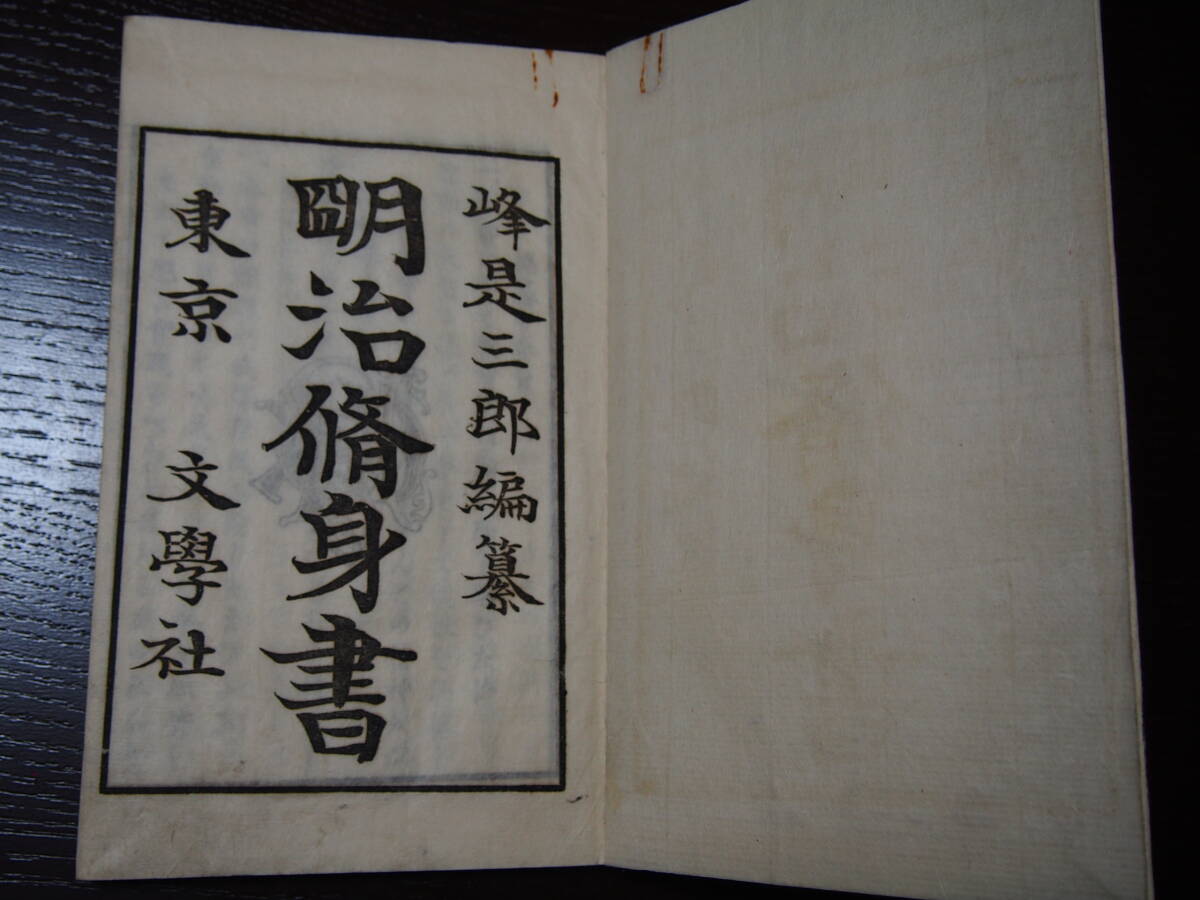 峰是三郎編纂
明治脩身書
東京 文學社